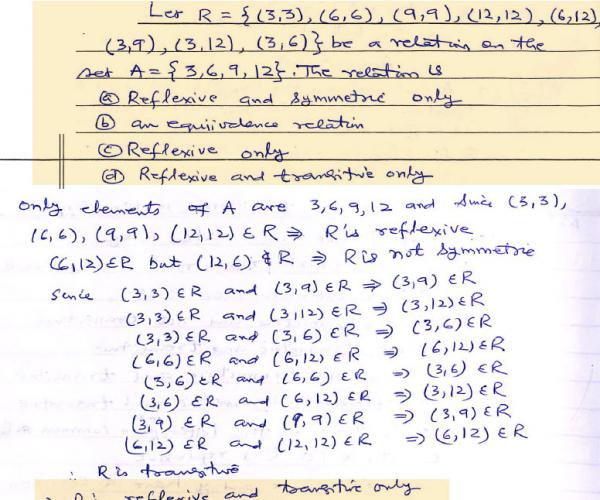 Let R = {(3,3), (6,6), (9,9), (12,12), (6,12),
(3,9), (3,12), (3,6)} be a relation on the
set A = {3, 6, 9, 12}. The relation is
(a) Reflexive and symmetric only
(b) an equivalence relation
(c) Reflexive only
(d) Reflexive and transitive only
Only elements of A are 3,6,9,12 and since (3,3),
(6,6), (9,9), (12,12) ∈ R ⇒ R is reflexive
(6,12) ∈ R but (12,6) ∉ R ⇒ R is not symmetric
Since (3,3) ∈ R and (3,9) ∈ R ⇒ (3,9) ∈ R
(3,3) ∈ R and (3,12) ∈ R ⇒ (3,12) ∈ R
(3,3) ∈ R and (3,6) ∈ R ⇒ (3,6) ∈ R
(6,6) ∈ R and (6,12) ∈ R ⇒ (6,12) ∈ R
(3,6) ∈ R and (6,6) ∈ R ⇒ (3,6) ∈ R
(3,6) ∈ R and (6,12) ∈ R ⇒ (3,12) ∈ R
(3,9) ∈ R and (9,9) ∈ R ⇒ (3,9) ∈ R
(6,12) ∈ R and (12,12) ∈ R ⇒ (6,12) ∈ R
∴ R is transitive
R is reflexive and transitive only